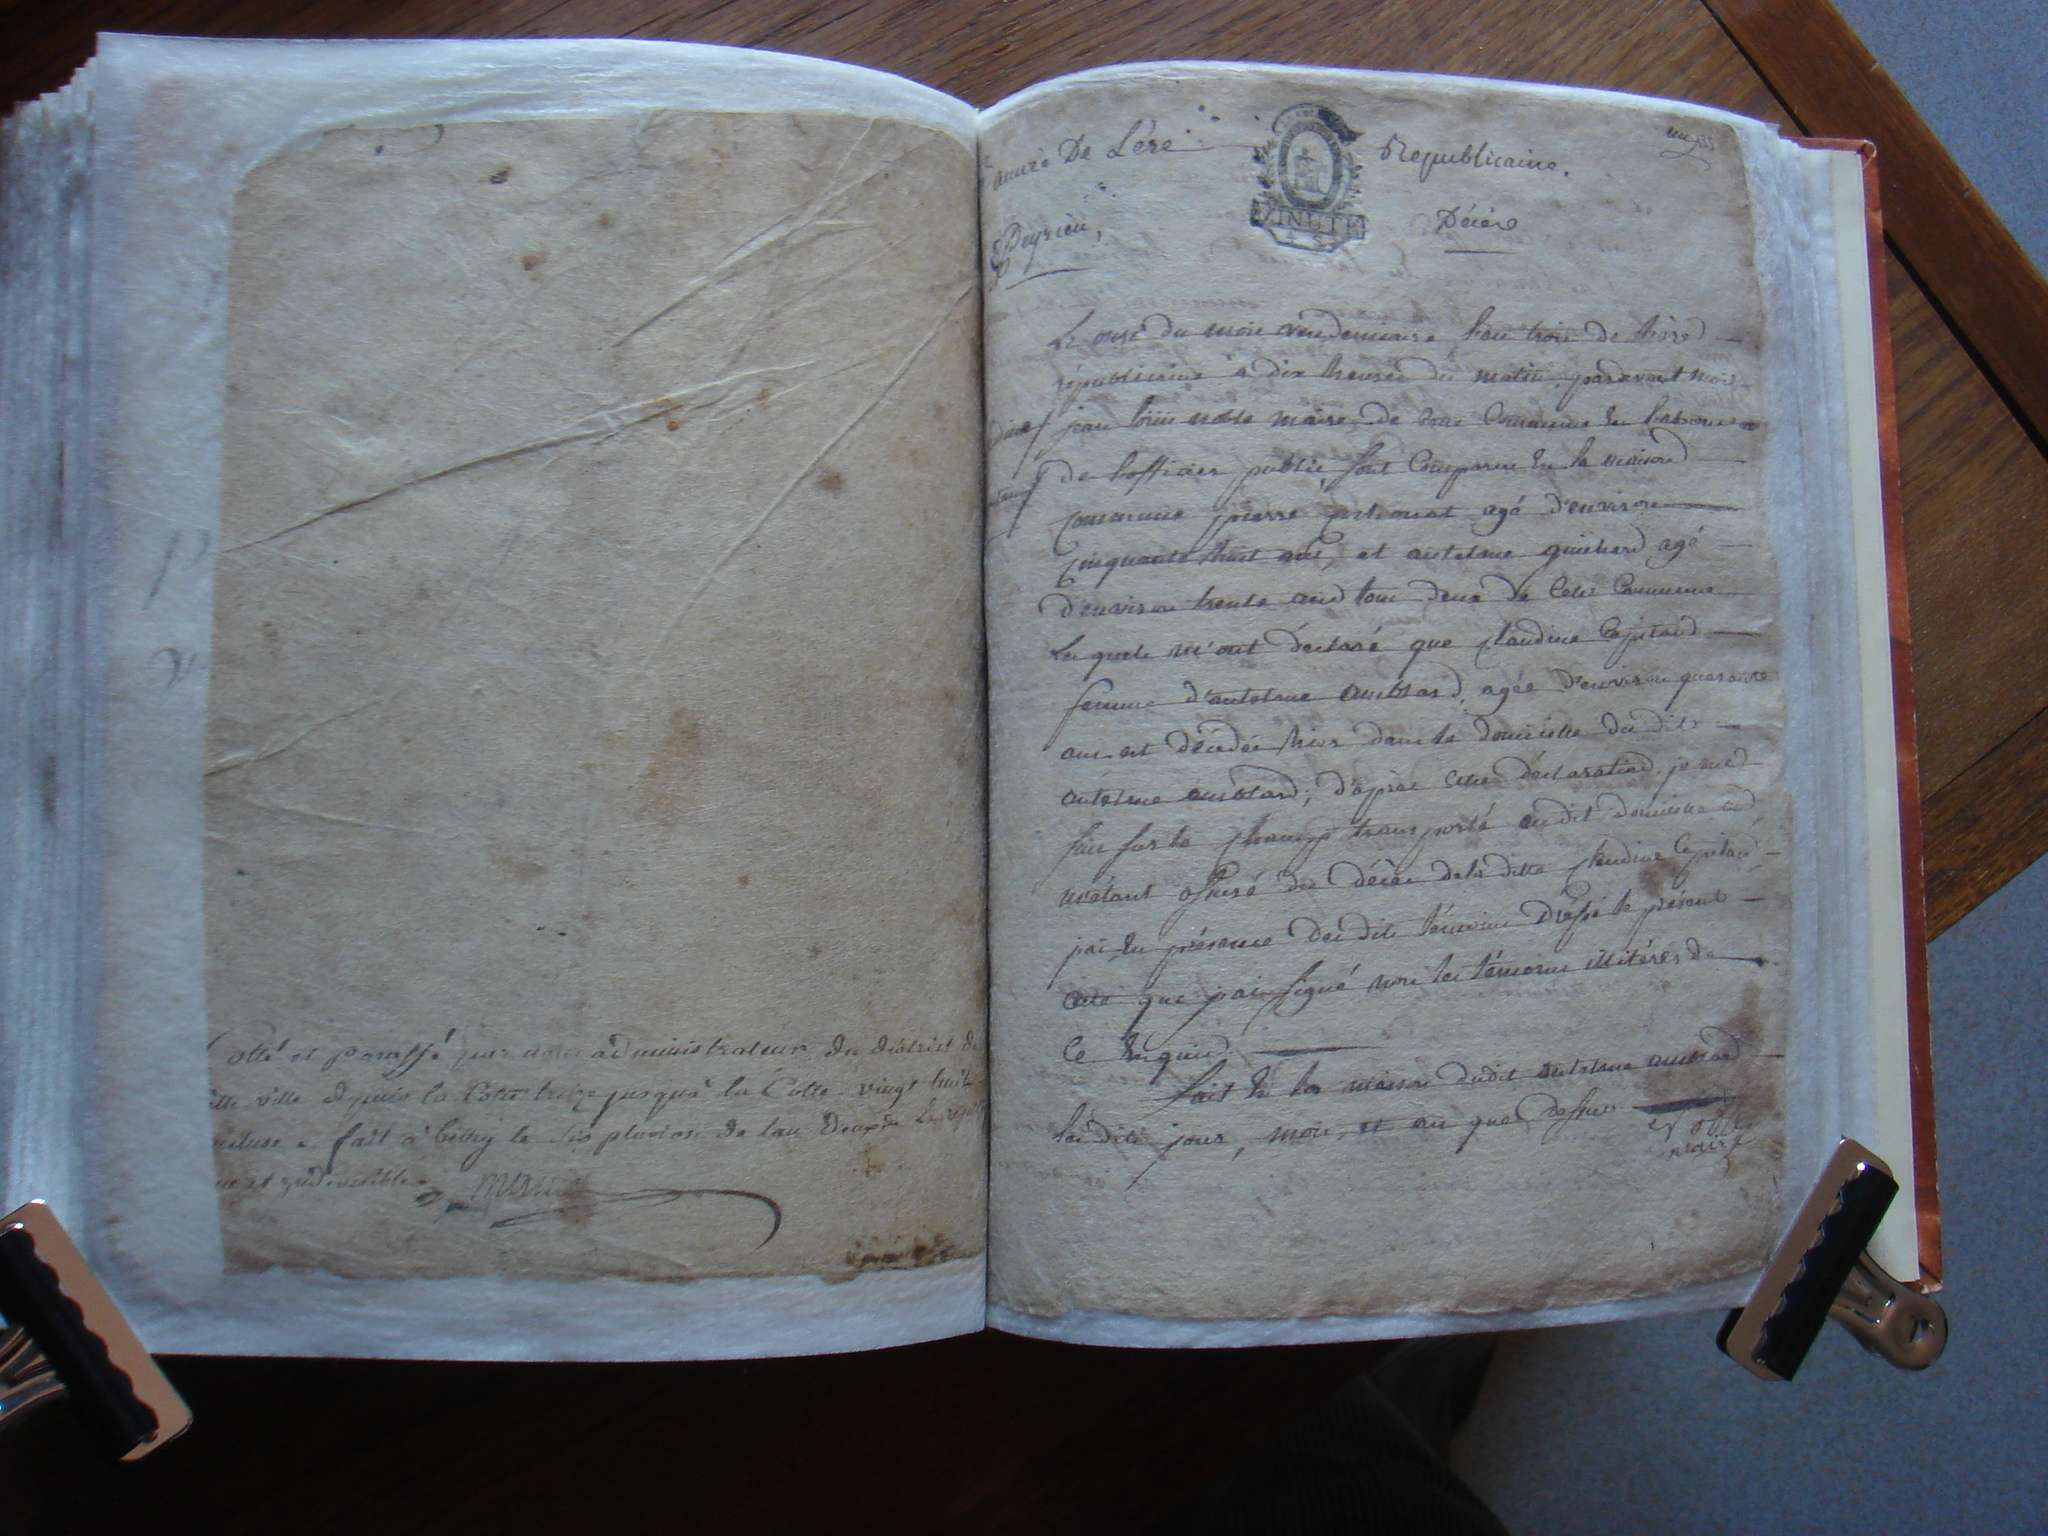 Cotté et paraffé par nous administrateur du district de
ville depuis la Cotte treize jusqu'à la Cotte vingt huit
incluse. fait à belley le six pluviose de l'an deuxe De la repub
une et indivisible.
année De L'ére Republicaine.
Peyrieu, Décès
Le onze du mois vendemiaire l'an trois de l'ère
républicaine à dix heures du matin, pardevant moi
jean louis noble maire de cette Commune en l'absence
de l'officier public, sont Comparus en la maison
Commune pierre agé d'environ
Cinquante huit ans, et antelme guichard agé
d'environ trente ans tous deux de Cette Commune
Lesquels m'ont déclaré que Claudine Capitand
femme d'antelme amblard, agée d'environ quarante
ans est décédée hier dans le domicille du dit
antelme amblard; d'après cette déclaration, je me
suis sur le champ transporté audit domicille et
m'étant assuré du décès de la ditte Claudine Capitand
jai en présence des dits témoins dréssé le présent
acte que j'ai signé non les témoins illitérés de
ce Enquis.
fait en la maison dudit antelme amblard
les dits jour, mois, et an que dessus
noble
maire